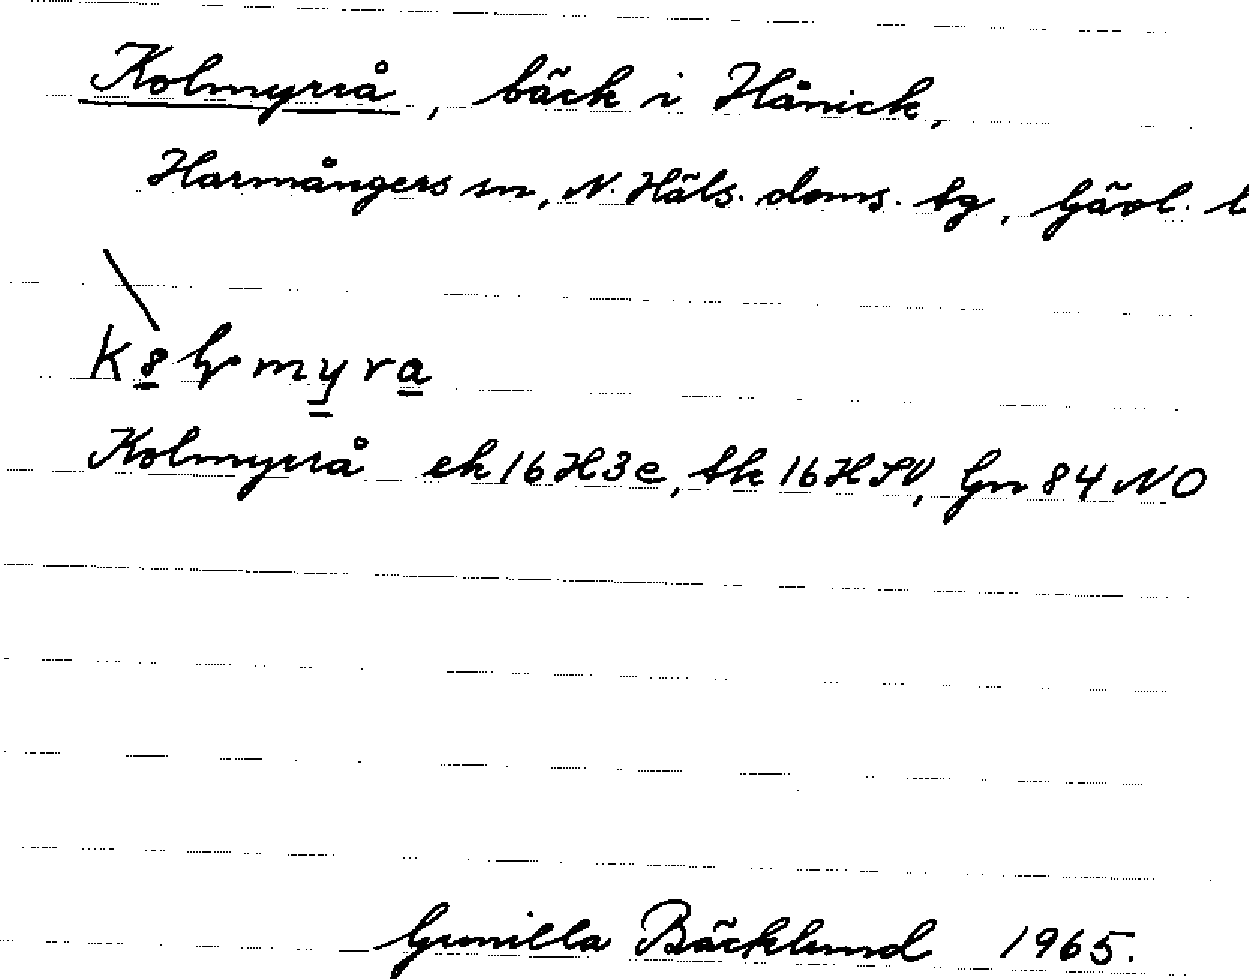 Kolmyrrå, bäck i Hånick,
Harmångers sn, N. Häls. doms. tg, Gävl. l
Kolmyrrå ek 16H3e, tk 16HSV, Gn 84 NO
Gunilla Bäcklund 1965.